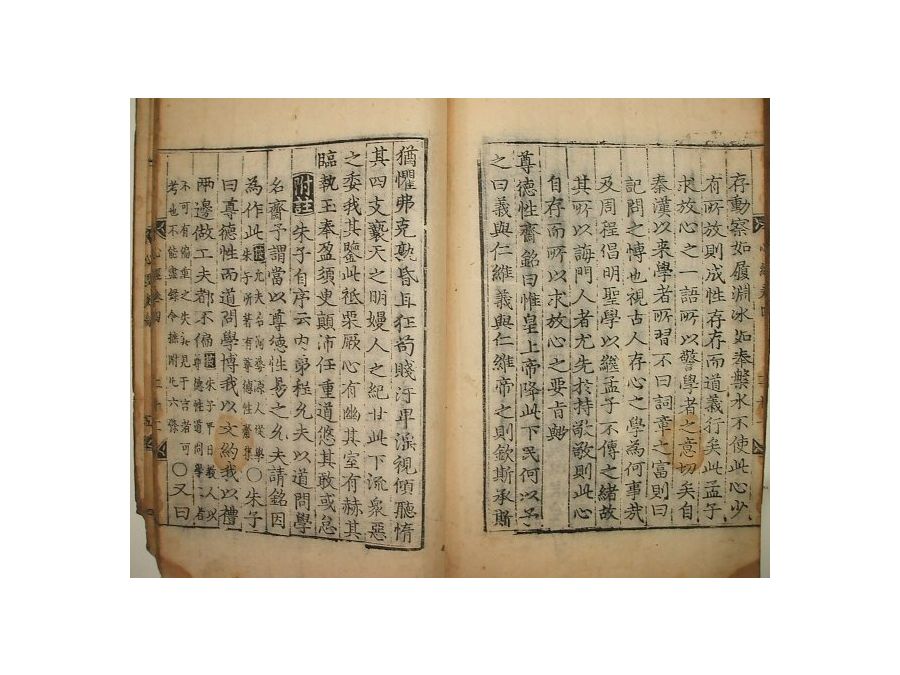 存動察如履淵冰如奉槃水不使此心少
有所放則成性存存而道義行矣此孟子
求放心之一語所以警學者之意切矣自
秦漢以来學者所習不曰詞章之富則曰
記問之博也視古人存心之學為何事我
及周程倡明聖學以繼孟子不傳之緒故
其所以誨門人者尤先於持敬敬則此心
自存而所以求放心之要旨歟
尊德性齋銘曰惟皇上帝降此下民何以予
之曰義與仁維義與仁維帝之則欽斯承斯
猶懼弗克孰昏且狂苟賤汙卑淫視傾聽惰
其四支褻天之明嫚人之紀甘此下流衆惡
之委我其鑒此祗栗厥心有幽其室有赫其
臨執玉奉盈須臾顛沛任重道悠其敢或怠
附註 朱子自序云内弟程允夫以道問學
名齋予謂當以尊德性易之允夫請銘因
為作此 允夫名洵婺源人從
朱子所著有尊德性齋集 〇朱子
曰尊德性而道問學博我以文約我以禮
兩邊做工夫都不偏 朱子平日教人以
尊德性道問學二者
不可有偏重之失於言者可
考也不能盡錄今摭附此六條 〇又曰
心經